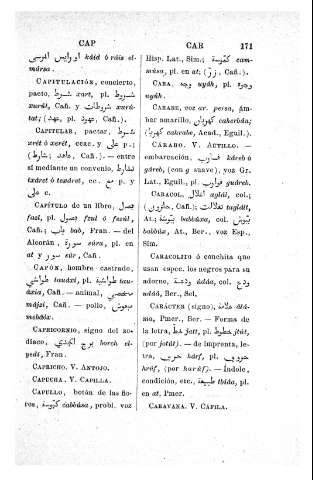 CAP
CAR
171
قايد اورايس العرسي káid ó ráis el-
mársa.
CAPITULACIÓN, concierto,
pacto, شرط xart, pl. شروط
xurút, Cañ. y شروطات xurú-
tat; (عهد, pl. عهود, Cañ.).
CAPITULAR, pactar, شرط
xrét ó xerét, ccac. y على p.;
(شارط, عاهد, Cañ.). — entre
sí mediante un convenio, تشارط
txáret ó texárat, cc. مع p. y
على c.
CAPÍTULO de un libro, فصل
fasl, pl. فصول fsul ó fusúl,
Cañ.; باب bab, Fran. — del
Alcorán, سورة súra, pl. en
at y سور súr, Cañ.
CAPÓN, hombre castrado,
طواشي tauáxi, pl. طواشية tau-
áxia, Cañ. — animal, مخصي
májzi, Cañ. — pollo, مبوش
mebóbx.
CAPRICORNIO, signo del zo-
díaco, برج الجدي borch el-
yedí, Fran.
CAPRICHO. V. ANTOJO.
CAPUCHA. V. CAPILLA.
CAPULLO, botón de las flo-
res, كبوسة cabbúsa, probl. voz
Hisp. Lat., Sim.; كموسة cam-
músa, pl. en at; (زر, Cañ.).
CARA, وجه uyáh, pl. وجوه
uyúh.
CÁRABE, voz ar. persa, ám-
bar amarillo, كهربان caherbán;
(كهربا cakrabe, Acad., Eguil.).
CÁRABO. V. AUTILLO. —
embarcación, قارب káreb ó
gáreb, (con g suave), voz Gr.
Lat., Eguil., pl. قوارب guáreb.
CARACOL, اغلال aglál, col.;
(حلزون, Cañ.); تغلالت taglált,
At.; ببوشة babbúxa, col. ببوش
babbúx, At., Ber., voz Esp.,
Sim.
CARACOLITO ó conchita que
usan espec. los negros para su
adorne, ودعة údda, col. ودع
uddá, Ber., Sel.
CARÁCTER (signo), علامة alá-
ma, Pmer., Ber. — Forma de
la letra, خط jatt, pl. خطوط jtút,
(por jotút). — de imprenta, le-
tra, حرف hárf, pl. حروف
hrúf, (por harúf). — Índole,
condición, etc., طبيعة tbida, pl.
en at, Pmer.
CARAVANA. V. CÁFILA.